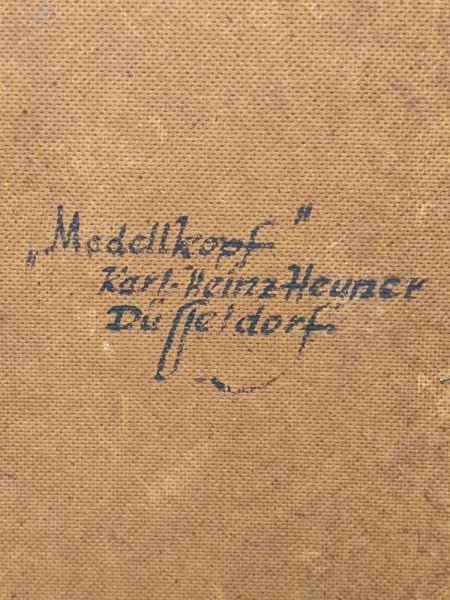 „Modellkopf"
Karl-Heinz Heuner
Düsseldorf.